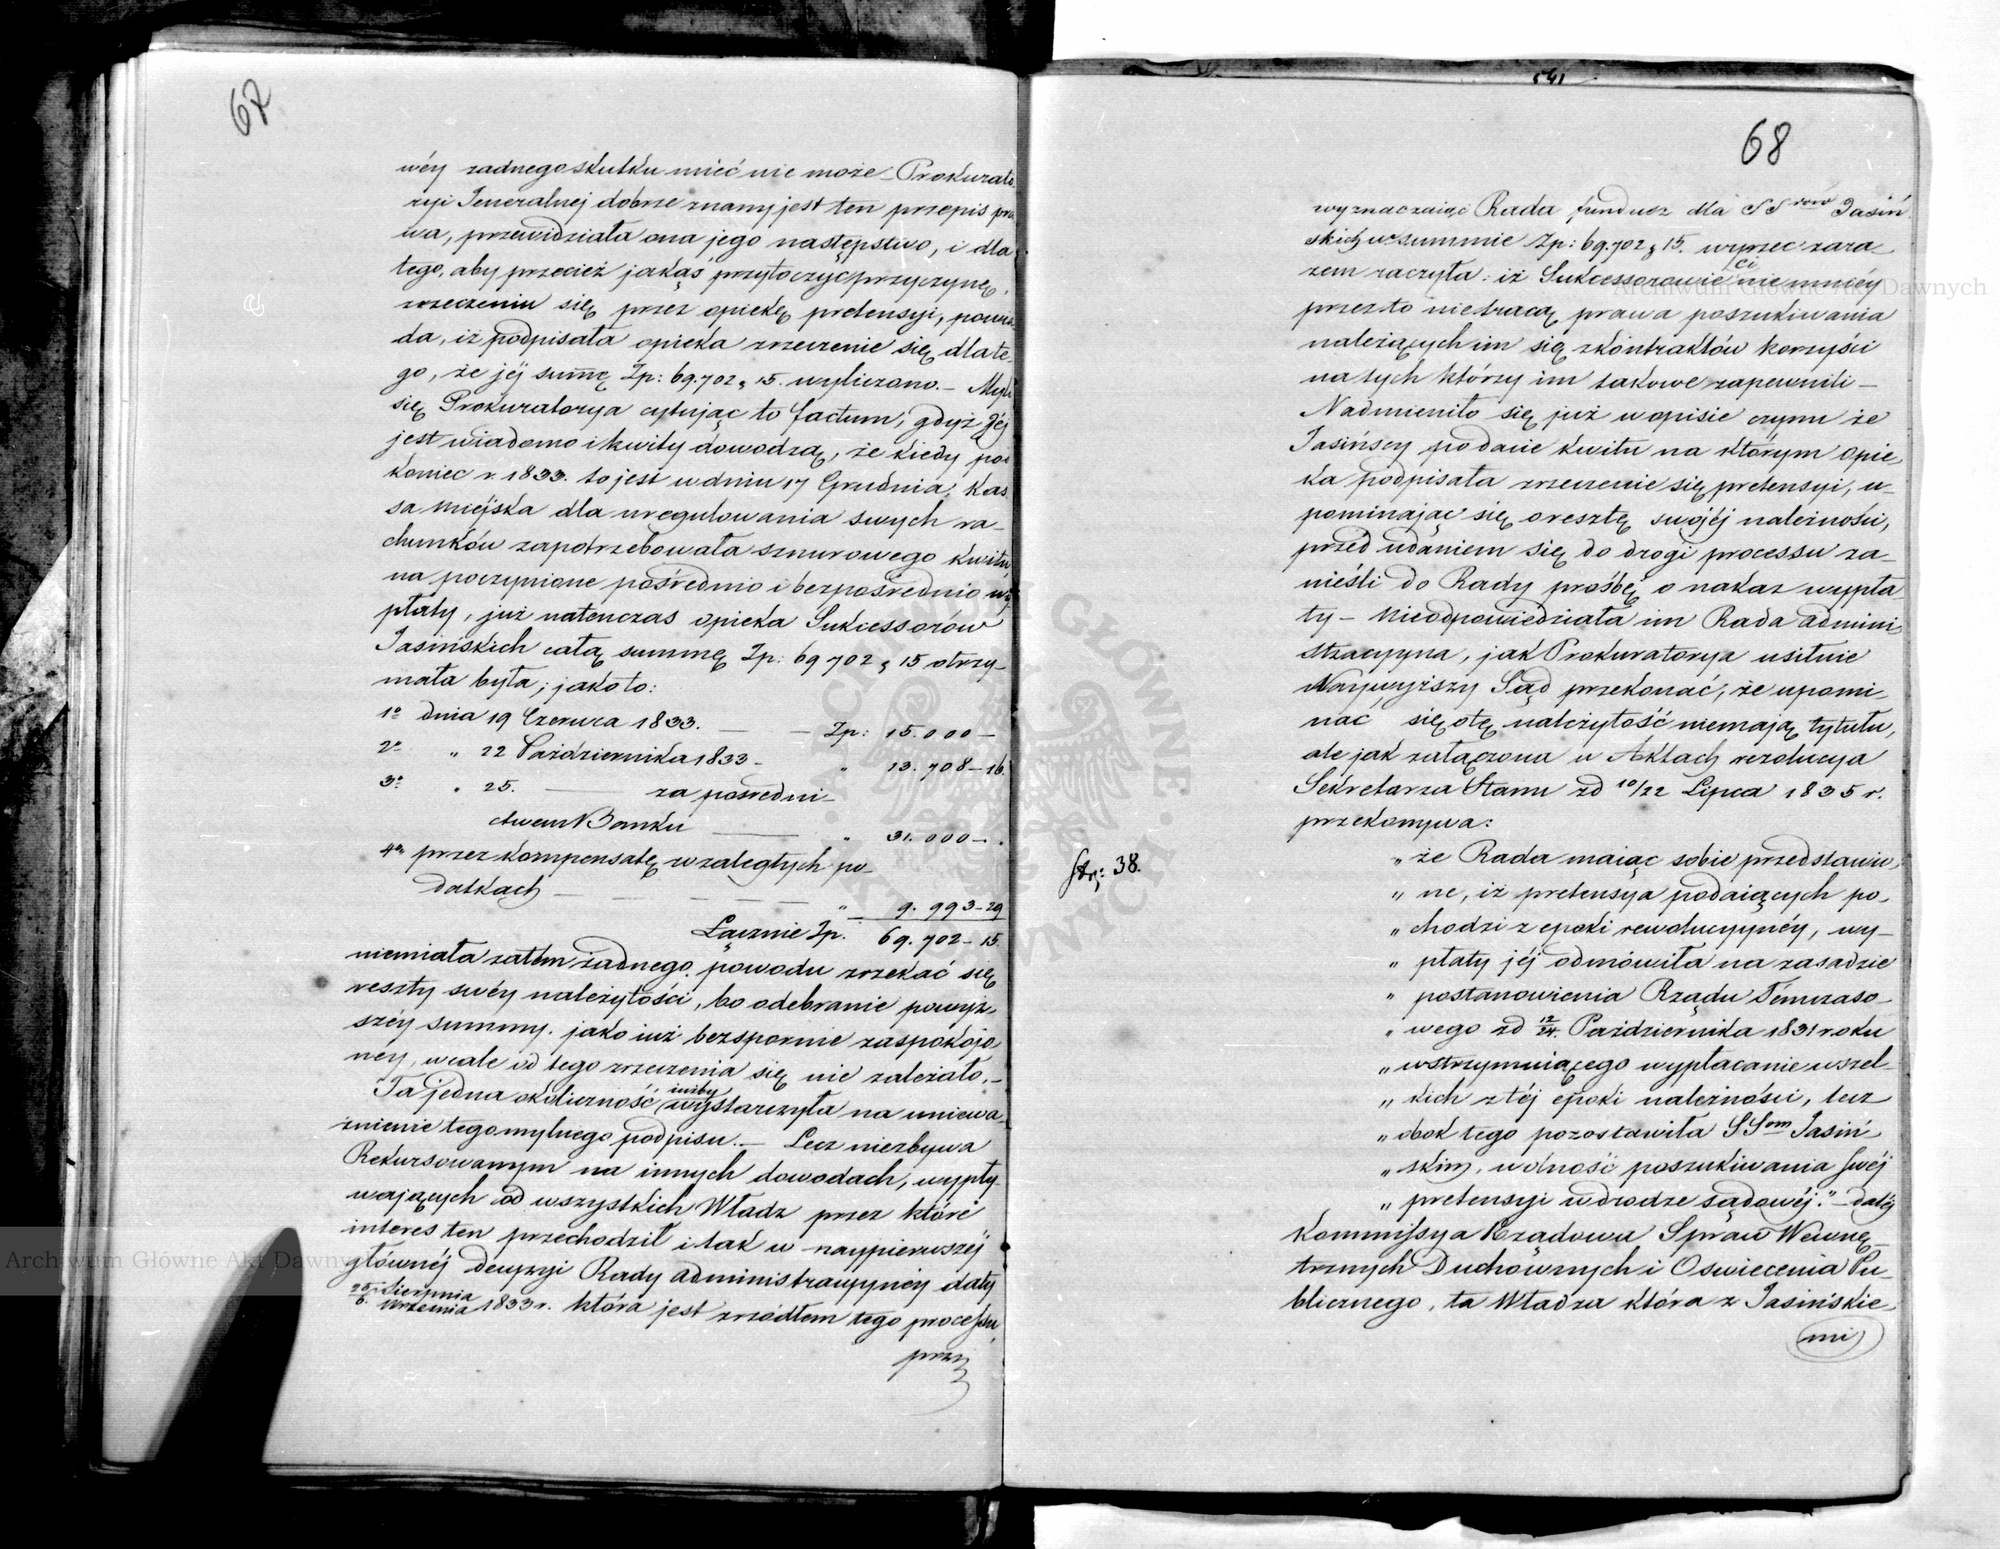 67
wéy żadnego skutku mieć nie może – Prokurato
ryi Jeneralnej dobrze znany jest ten przepis pra
wa, przewidziała ona jego następstwo, i dla
tego, aby przecież jakąś przytoczyć przyczynę,
zrzeczeniu się przez opiekę pretensyi, powia
da, iż podpisała opieka zrzeczenie się dla te
go, że jéj summę Zp: 69.702 g 15. wyliczono. – Myli
się Prokuratorya cytując to factum, gdyż Jéj
jest wiadomo i kwity dowodzą, że kiedy pod
koniec r. 1833. to jest w dniu 17 Grudnia, Kas
sa Miéjska dla uregulowania swych ra–
chunków zapotrzebowała sznurowego kwitu
na poczynione pośrednio i bezpośrednio wy
płaty, już natenczas opieka Sukcessorów
Jasińskich całą summę Zp: 69 702 g 15 otrzy–
mała była; jako to:
1o dnia 19 Czerwca 1833. — — Zp: 15.000 –
2o „ 22 Października 1833 – „ 13.708 – 16.
3o „ 25. — za pośredni–
ctwem Banku — „ 31.000 – .
4o przez kompensatę w zaległych po–
datkach — — — — „ 9.993–29
Łącznie Zp. 69.702 – 15.
niemiała zatém żadnego powodu zrzekać się
reszty swéy należytości, bo odebranie powyż–
széy summy. jako już bezspornie zaspokojo
néy, wcale od tego zrzeczenia się nie zależało. –
Ta jedna okoliczność iużby wystarczyła na uniewa–
żnienie tego mylnego podpisu. – Lecz niezbywa
Rekursowanym na innych dowodach, wypły–
wających od wszystkich Władz przez któré
interes ten przechodził i tak w naypierwszéj
głównéj decyzyi Rady Administracyynéy daty
25/6. Sierpnia/Września 1833 r. która jest zrzódłem tego processu,
przy
541
68
wyznaczaiąc Rada fundusz dla SSrów Jasiń
skich w summie Zp: 69.702 g 15. wyrzec zara–
zem raczyła: iż Sukcessorowie ci niemniéy
przez to nietracą prawa poszukiwania
należących im się z kontraktów korzyści
na tych którzy im takowe zapewnili –
Nadmieniło się już w opisie czynu że
Jasińscy po dacie kwitu na którym opie
ka podpisała zrzeczenie się pretensyi, u–
pominając się o resztę swojéj należności,
przed udaniem się do drogi processu za–
nieśli do Rady prośbę o nakaz wypła
ty – Nieodpowiedziała im Rada Admini
stracyyna, jak Prokuratorya usiłuie
Naywyższy Sąd przekonać, że upomi
nać się o tę należytość niemają tytułu,
ale jak załączona w Aktach rezolucya
Sekretarza Stanu zd 10/22 Lipca 1835 r.
przekonywa:
Str: 38.
„ że Rada maiąc sobie przedstawio
„ ne, iż pretensya podaiących po–
„ chodzi z epoki rewolucyynéy, wy–
„ płaty jéj odmówiła na zasadzie
„ postanowienia Rządu Témczaso–
„ wego zd 12/24. Października 1831 roku
„ wstrzymuiącego wypłacanie wszel–
„ kich z téj epoki należności, lecz
„ obok tego pozostawiła SSom Jasiń
„ skim, wolność poszukiwania swéj
„ pretensyi w drodze sądowéj.“ – daléj
Kommissya Rządowa Spraw Wewnę–
trznych Duchownych i Oświecenia Pu–
blicznego, ta Władza która z Jasińskie
mi